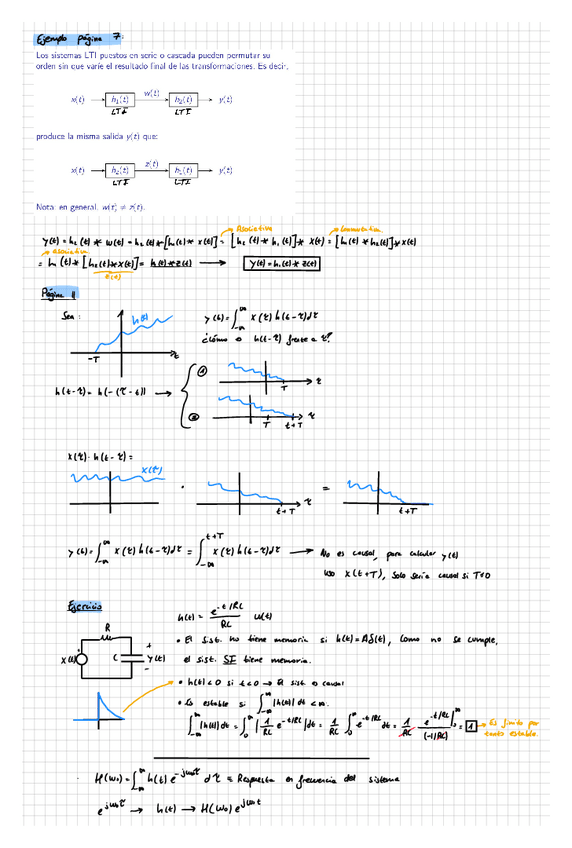 Ejemplo página 7:
Los sistemas LTI puestos en serie o cascada pueden permutar su
orden sin que varíe el resultado final de las transformaciones. Es decir,
x(t) → h₁(t) w(t) → h₂(t) → y(t)
LTI LTI
produce la misma salida y(t) que:
x(t) → h₂(t) z(t) → h₁(t) → y(t)
LTI LTI
Nota: en general, w(t) ≠ z(t).
Asociativa Conmutativa
y(t) = h₂(t) * w(t) = h₂(t) * [h₁(t) * x(t)] = [h₂(t) * h₁(t)] * x(t) = [h₁(t) * h₂(t)] * x(t)
Asociativa
= h₁(t) * [h₂(t) * x(t)] = h₁(t) * z(t) → y(t) = h₁(t) * z(t)
z(t)
Página 11
Sea: h(t) y(t) = ∫_{-∞}^{∞} x(τ) h(t-τ) dτ
¿Cómo o h(t-τ) frente a τ?
-T t
h(t-τ) = h(-(τ-t)) → ① T τ
② T t+T τ
x(τ)·h(t-τ) =
x(τ) · t+T τ = t+T
y(t) = ∫_{-∞}^{∞} x(τ) h(t-τ) dτ = ∫_{-∞}^{t+T} x(τ) h(t-τ) dτ → No es causal, para calcular y(t)
uso x(t+T), solo sería causal si T<0
Ejercicio
h(t) = e^{-t/RC}/RC u(t)
R
x(t) C + y(t) -
• El sist. no tiene memoria si h(t) = Aδ(t), como no se cumple,
el sist. SÍ tiene memoria.
• h(t) = 0 si t<0 → El sist. o causal
• Es estable si ∫_{-∞}^{∞} |h(t)| dt < ∞.
∫_{-∞}^{∞} |h(t)| dt = ∫_{0}^{∞} |1/RC e^{-t/RC}| dt = 1/RC ∫_{0}^{∞} e^{-t/RC} dt = 1/RC e^{-t/RC}/(-1/RC) |_{0}^{∞} = 1 → Es finito por
tanto estable.
H(ω₀) = ∫_{-∞}^{∞} h(τ) e^{-jω₀τ} dτ ≡ Respuesta en frecuencia del sistema
e^{jω₀t} → h(t) → H(ω₀) e^{jω₀t}